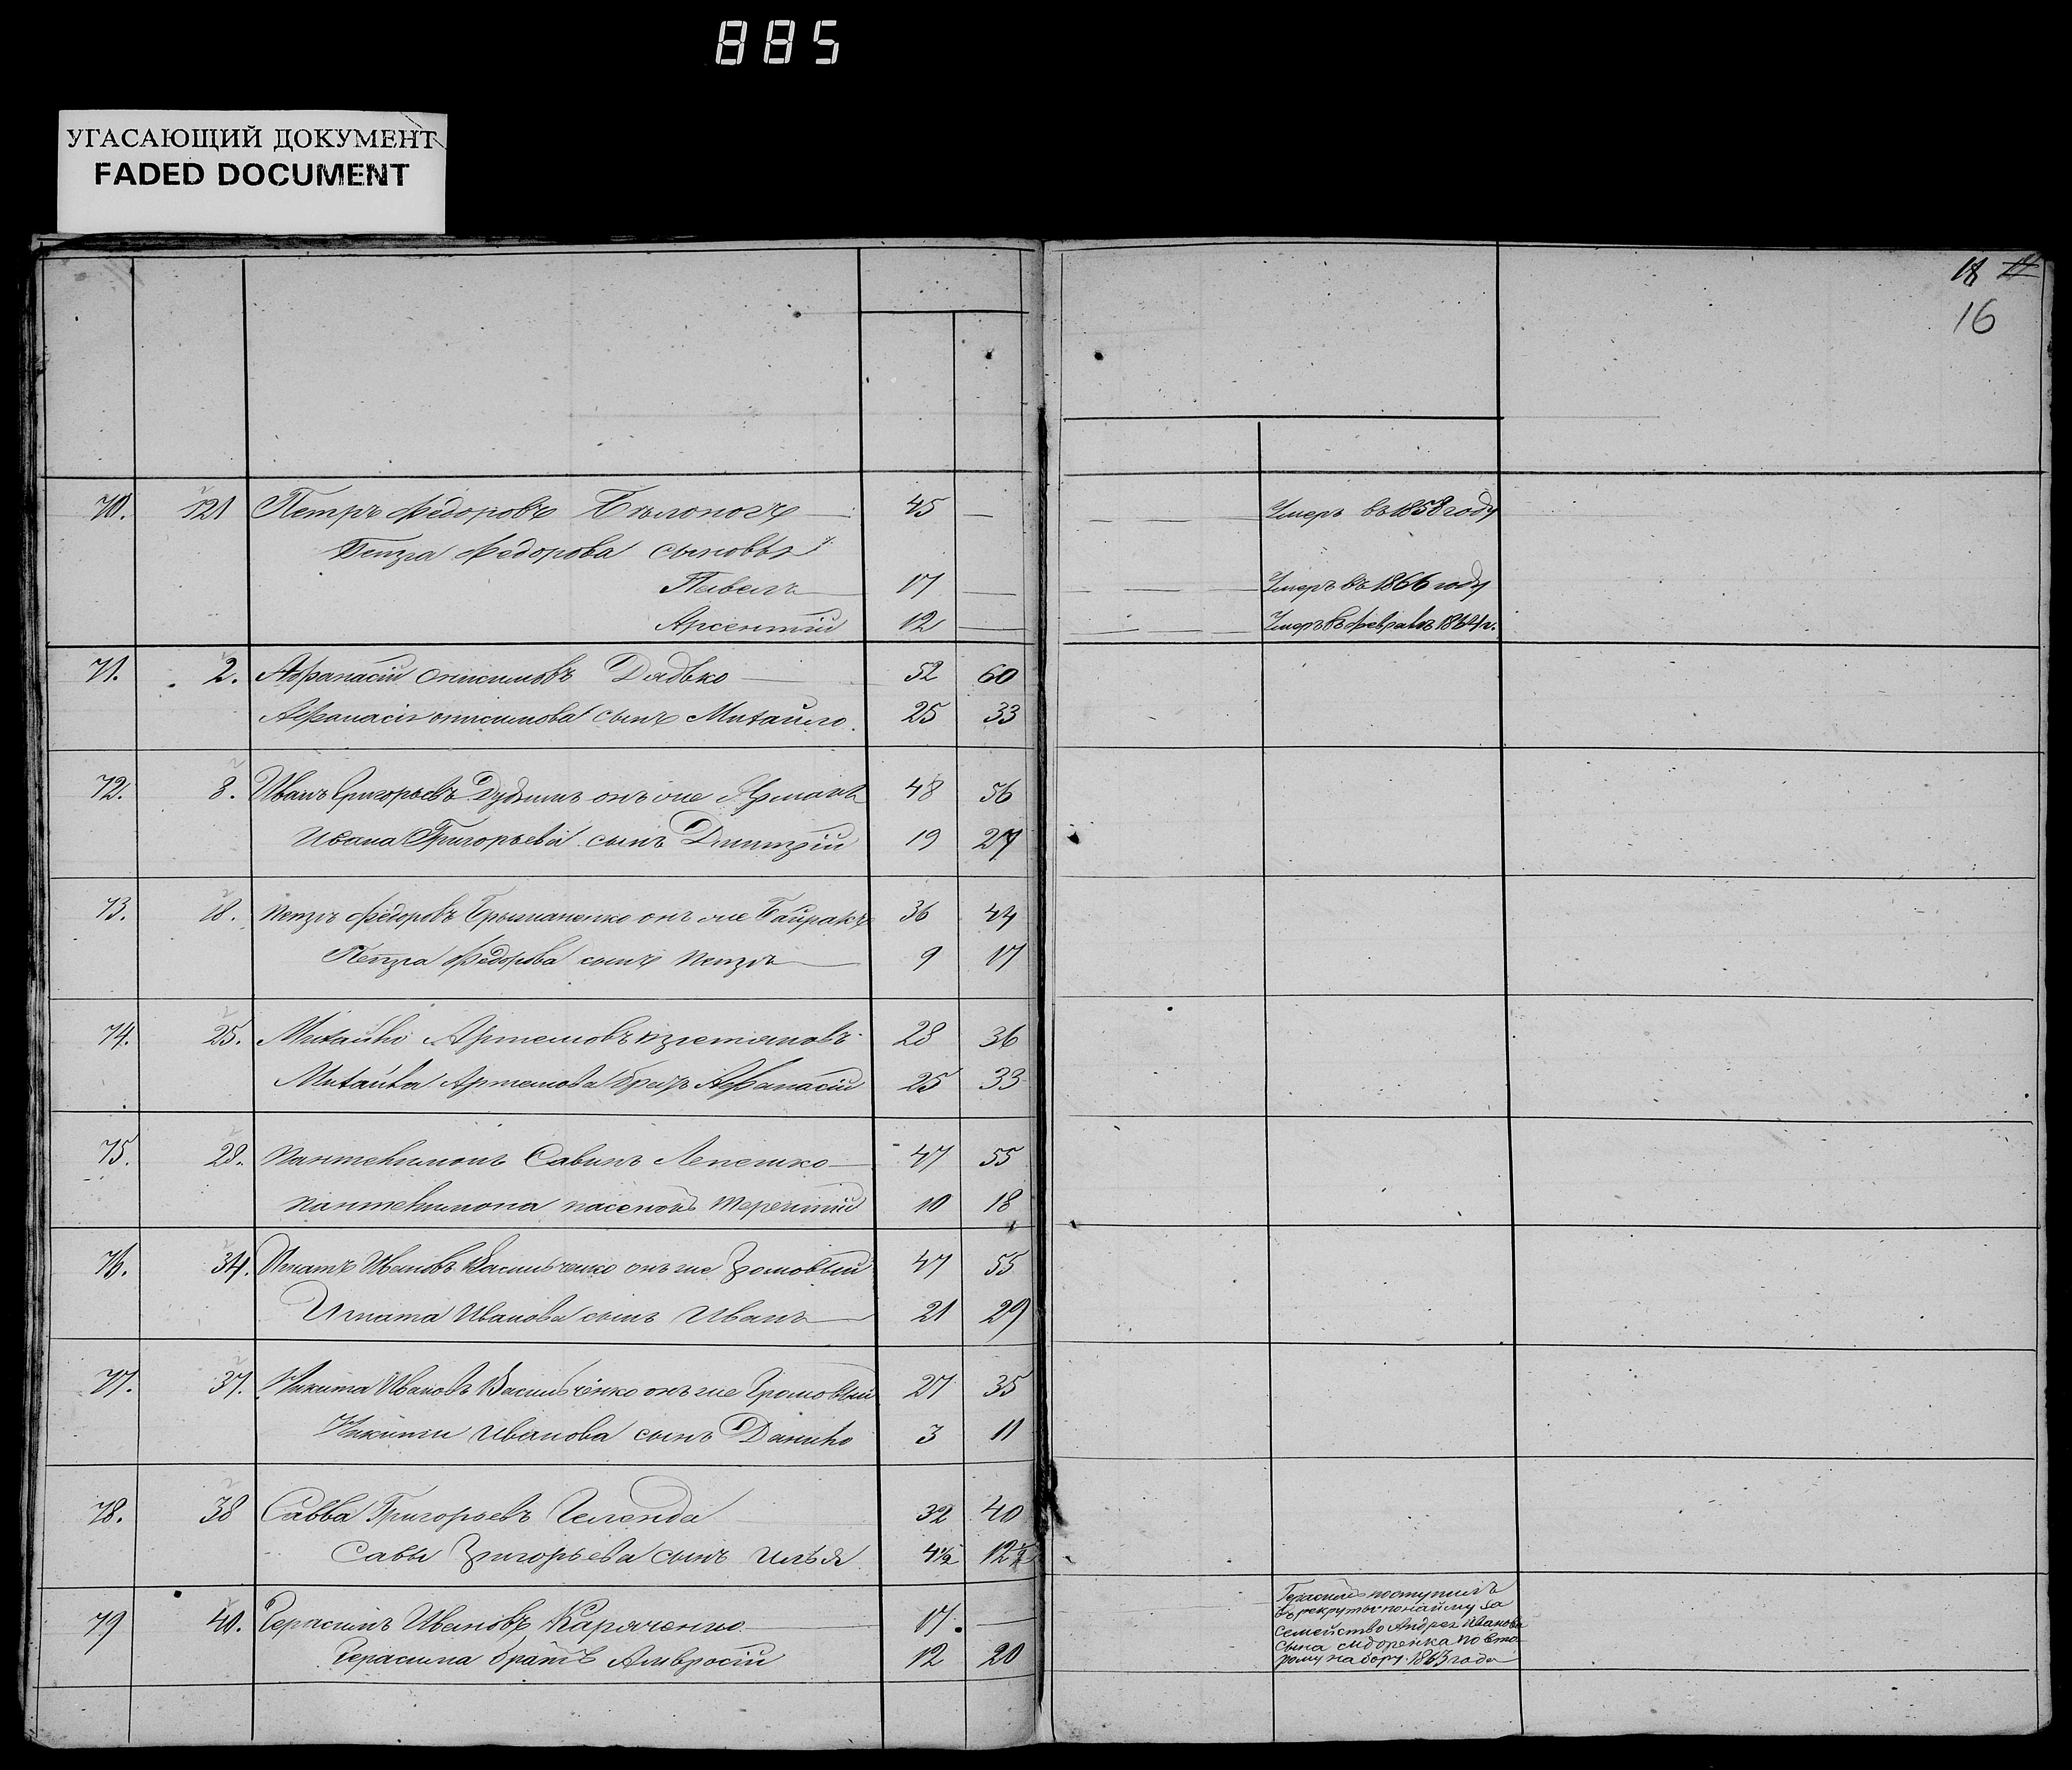 885
УГАСАЮЩИЙ ДОКУМЕНТ
FADED DOCUMENT
16
70. 121 Петръ Федоровъ Бѣлоногъ 45 — Умеръ въ 1858 году
Петра Федорова сыновья
Павелъ 17 — Умеръ въ 1866 году
Арсентій 12 — Умеръ въ Февралѣ 1864 г.
71. 2. Афанасій Онисимовъ Дядько 52 60
Афанасія Онисимова сынъ Михайло 25 33
72. 8. Иванъ Григорьевъ онъ же 48 56
Ивана Григорьева сынъ Дмитрій 19 27
73. 18. Петръ Федоровъ онъ же Байракъ 36 44
Петра Федорова сынъ Петръ 9 17
74. 25. Михайло Артемовъ 28 36
Михайла Артемова братъ Афанасій 25 33
75. 28. Пантелимонъ Савинъ Лепешко 47 55
Пантелимона пасенокъ Терентій 10 18
76. 34. Игнатъ Ивановъ Васильченко онъ же Громовый 47 55
Игната Иванова сынъ Иванъ 21 29
77. 37. Никита Ивановъ Васильченко онъ же Громовый 27 35
Никиты Иванова сынъ Данило 3 11
78. 38 Савва Григорьевъ Геленда 32 40
Савы Григорьева сынъ Илья 4½ 12½
79 40. Герасимъ Ивановъ Карпченко 17. —
Герасима братъ Амвросій 12 20
Герасимъ поступилъ
въ рекруты по найму за
семейство Андрея Иванова
сына Сидоренка по вто
рому набору 1863 года